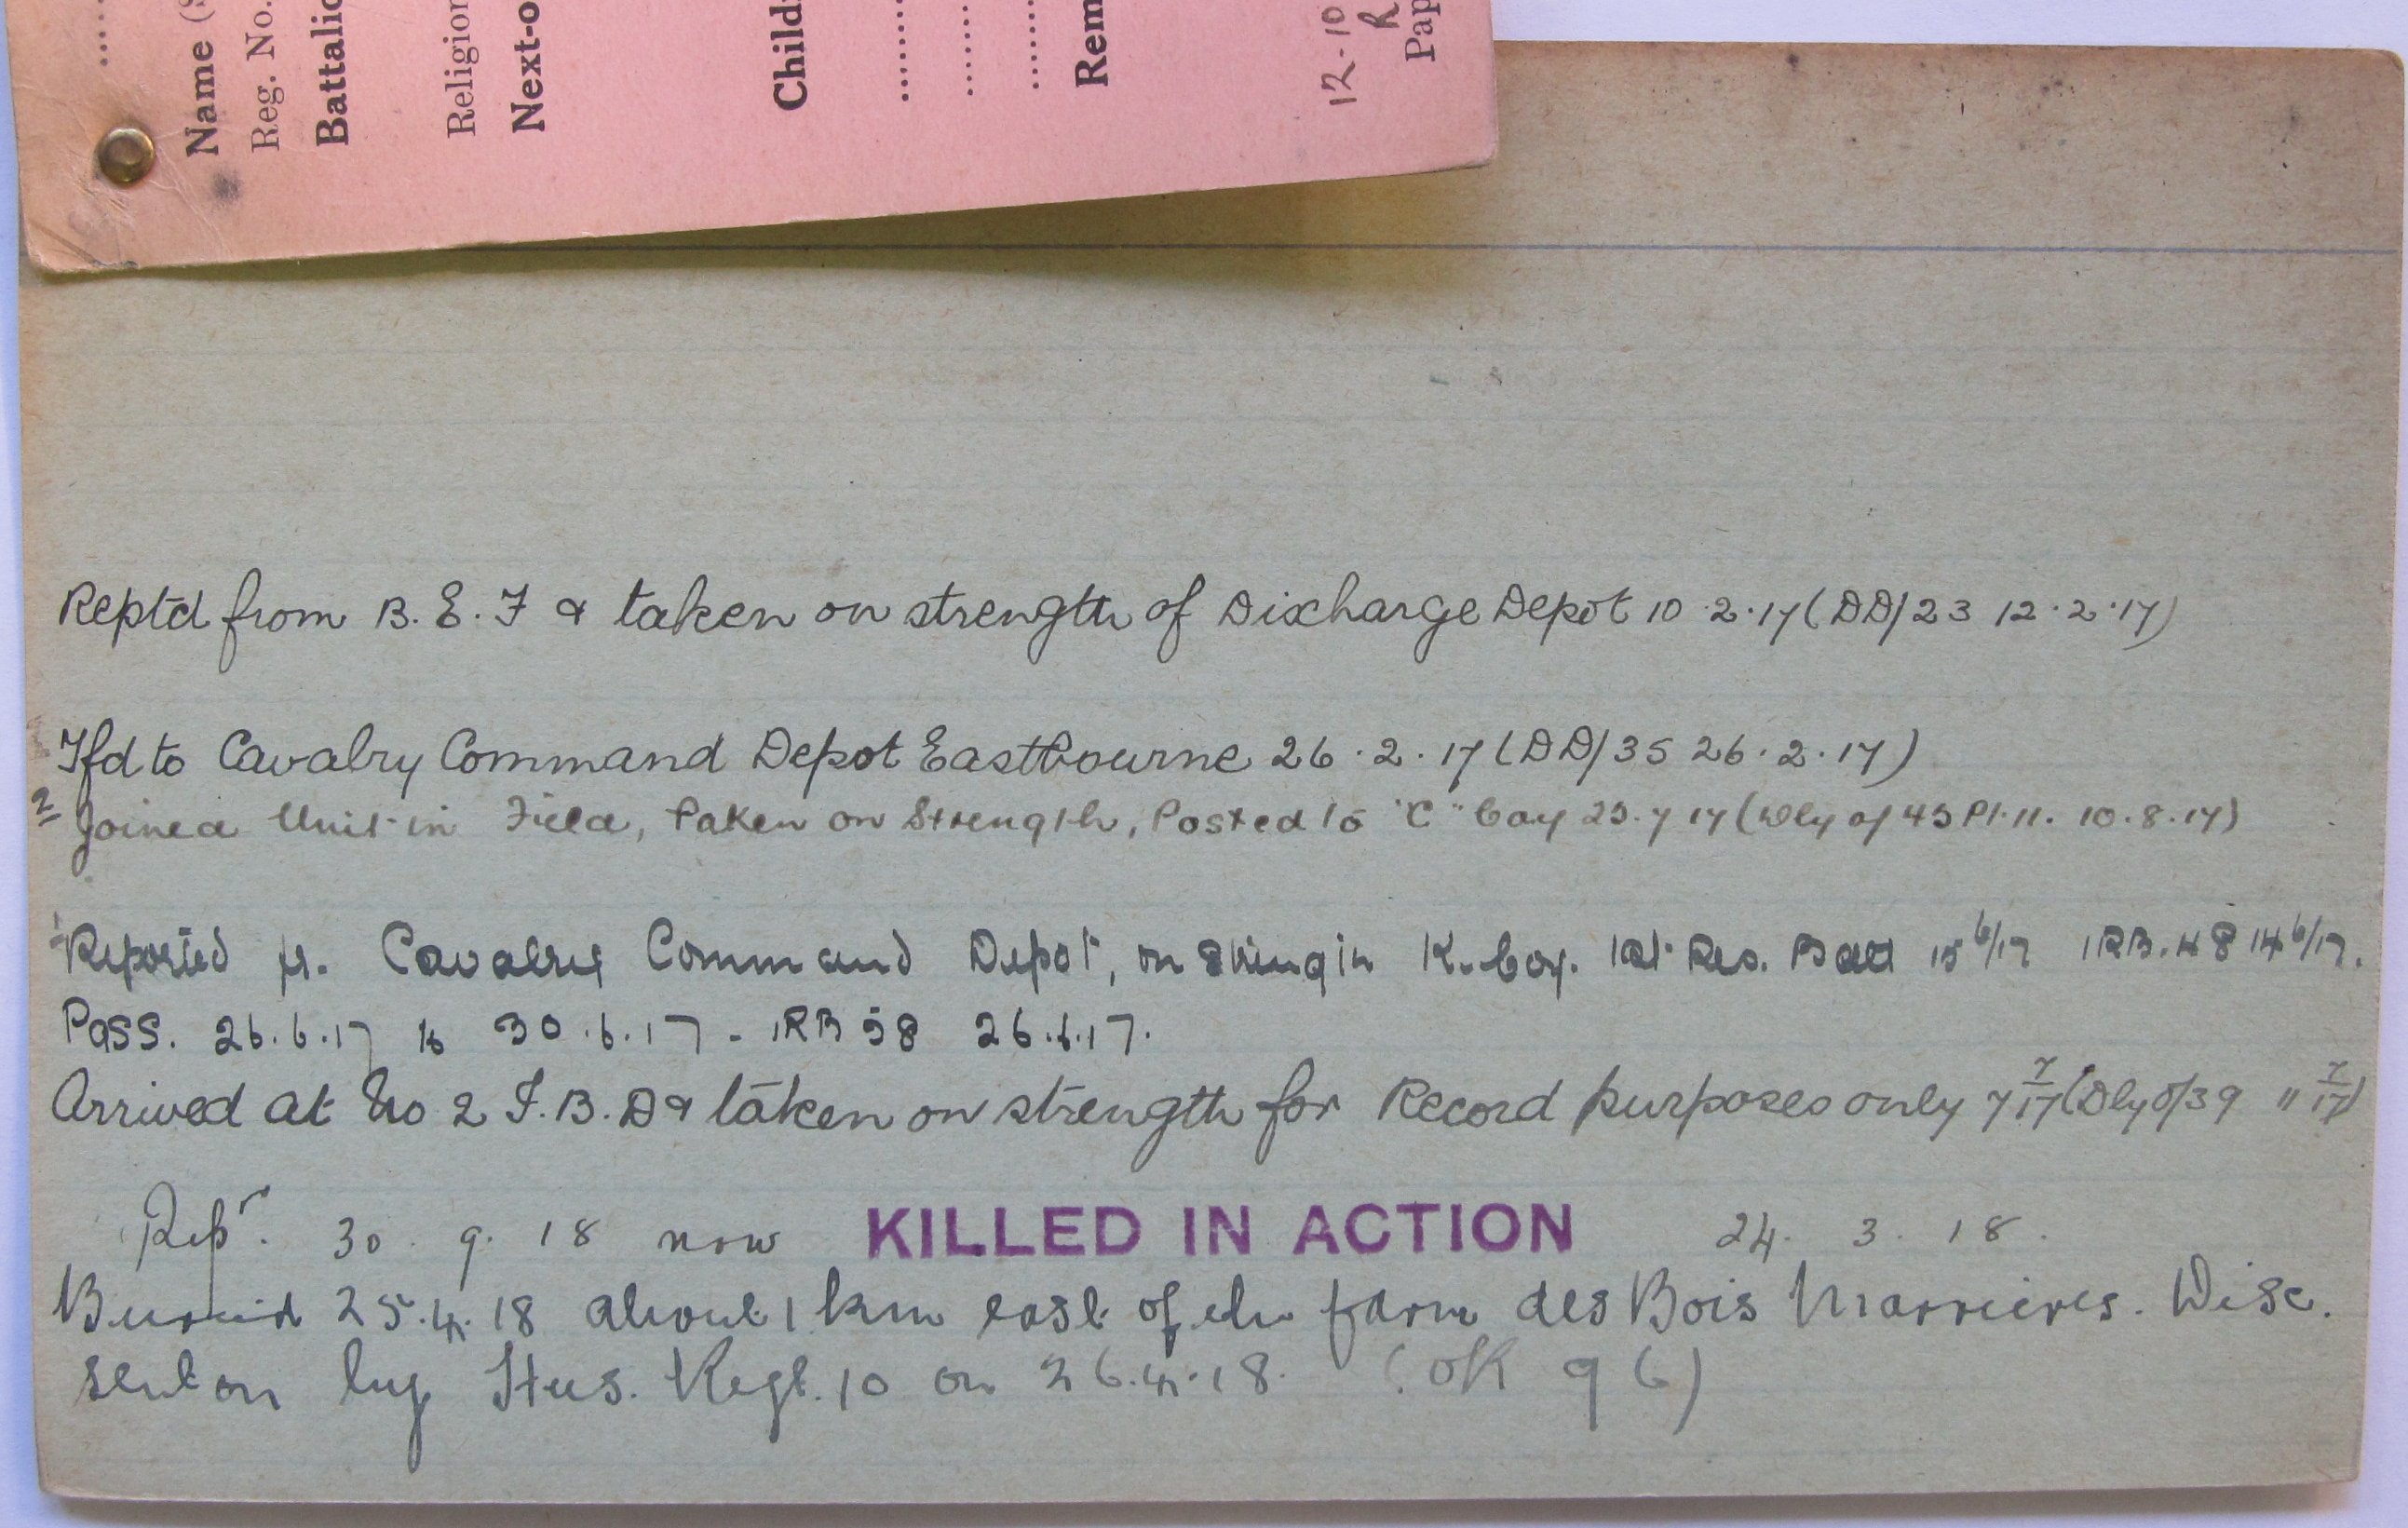 Name (S
Reg. No.
Battalio
Religion
Next-o
Child
Rem
12-10
R
Pap
Reptd from B.E.F & taken on strength of Discharge Depot 10.2.17 (DD/23 12.2.17)
Tfd to Cavalry Command Depot Eastbourne 26.2.17 (DD/35 26.2.17)
2 Joined Unit in Field, Taken on Strength, Posted to "C" Coy 23.7.17 (Dly O/ 43 Pt.11. 10.8.17)
1 Reported fr. Cavalry Command Depot, on strength K. Coy. 1st Res. Batt 15 6/17 1RB.48 14 6/17.
Pass. 26.6.17 to 30.6.17 - 1RB 58 26.6.17.
Arrived at No 2 I.B.D & taken on strength for Record purposes only 7 7/17 (Dly O/39 " 7/17)
Repr. 30.9.18 now KILLED IN ACTION 24.3.18.
Buried 25.4.18 about 1 km east of the farm des Bois Marrieres. Disc.
sent on by Hus. Regt. 10 on 26.4.18. (OK 96)